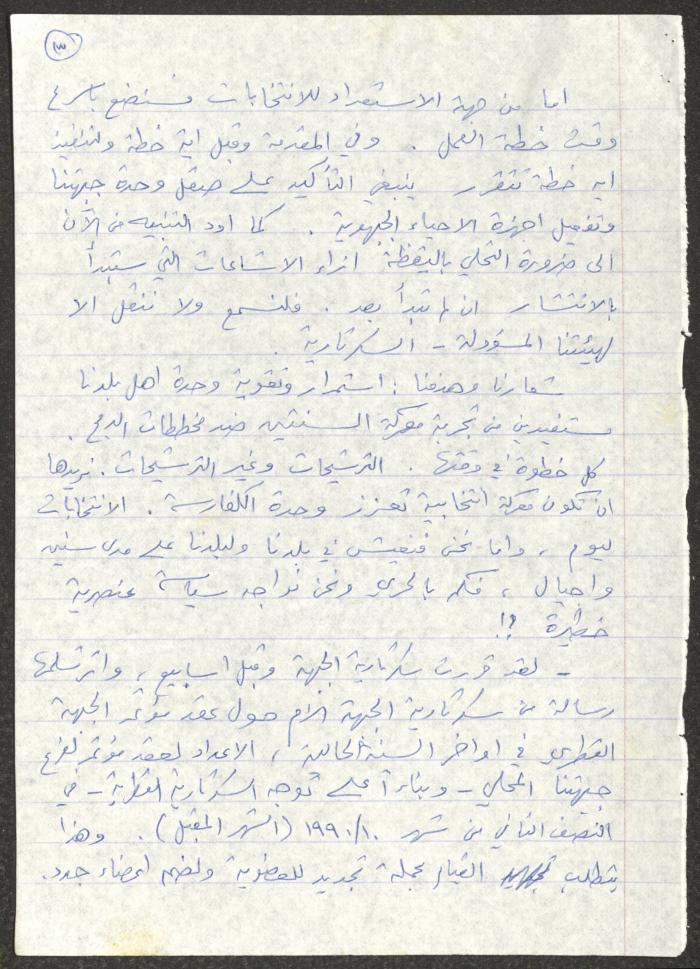 ٣
اما من جهة الاستعداد للانتخابات فسنضع باسرع
وقت خطة العمل . وفي المقدمة وقبل اية خطة ولتنفيذ
اية خطة تتقرر ينبغي التأكيد على صقل وحدة جبهتنا
وتفعيل اجهزة الاحياء الجبهوية . كما اود التنبيه من الآن
الى ضرورة التحلي باليقظة ازاء الاشاعات التي ستبدأ
بالانتشار ان لم تبدأ بعد . فلنسمع ولا ننقل الا
لهيئتنا المسؤولة - السكرتارية .
شعارنا وهدفنا : استمرار وتقوية وحدة اهل بلدنا
مستفيدين من تجربة معركة السنتين ضد مخططات الدمج .
كل خطوة في وقتها . الترشيحات وغير الترشيحات . نريدها
ان تكون معركة انتخابية تعزز وحدة الكفارسة . الانتخابات
ليوم ، واما نحن فنعيش في بلدنا ولبلدنا على مدى سنين
واجيال ، فكم بالحري ونحن نواجه سياسة عنصرية
خطيرة ؟!
- لقد قررت سكرتارية الجبهة وقبل اسابيع ، واثر تسلمها
رسالة من سكرتارية الجبهة الام حول عقد مؤتمر الجبهة
القطري في اواخر السنة الحالية ، الاعداد لعقد مؤتمر لفرع
جبهتنا المحلي - وبناءً على توجه السكرتارية القطرية - في
النصف الثاني من شهر ١٩٩٠/١٠ (الشهر المقبل) . وهذا
يتطلب القيام بحملة تجديد للعضوية ولضم اعضاء جدد .